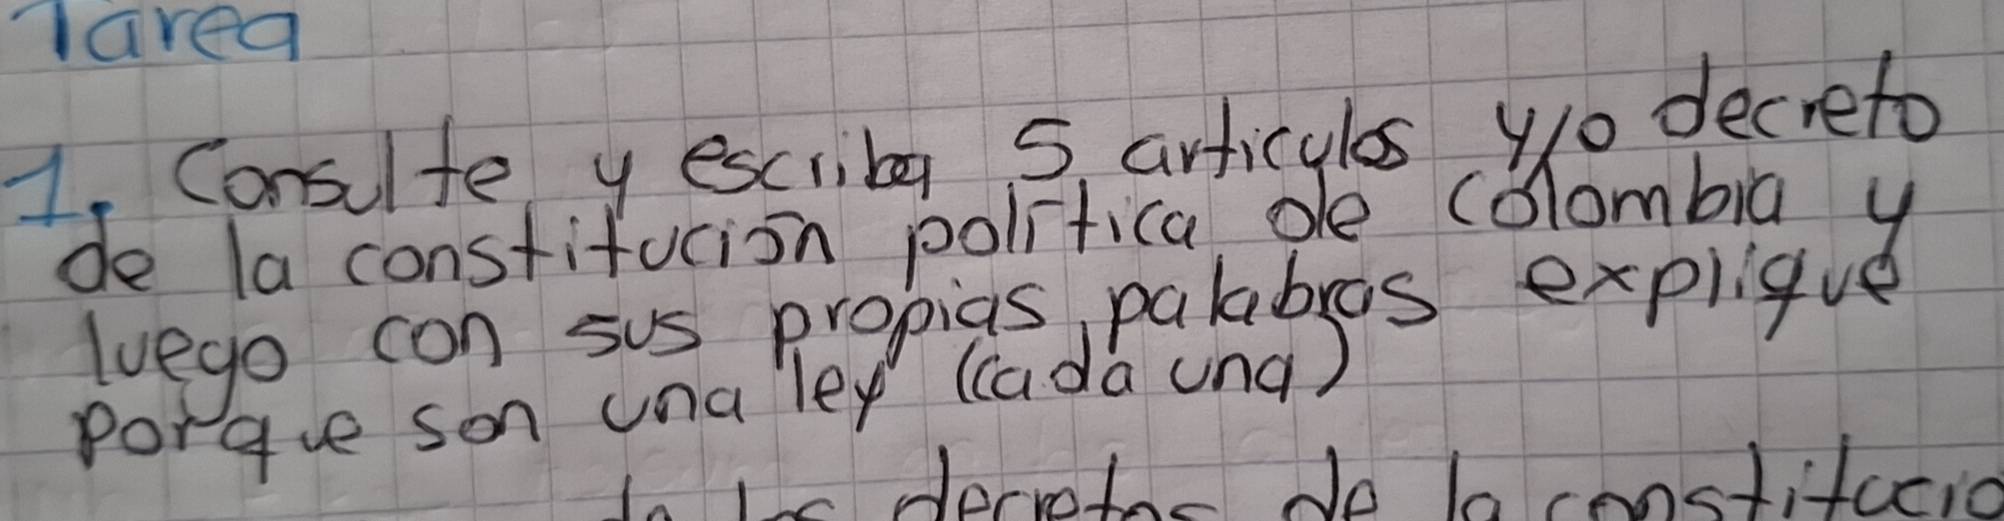 Tarea
1. Consulte y escriba 5 articulos y/o decreto
de la constitución política de colombia y
luego con sus propias palabras explique
porque son una ley (cada una)
de los decretos de la constitucio